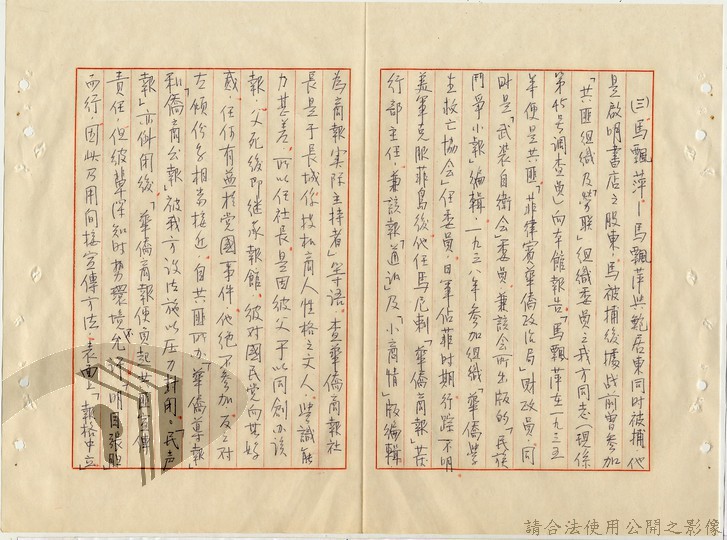 (三)馬飄萍—馬飄萍與鮑居東同時被捕他
是啟明書店之股東,馬被捕後據戰前曾參加
「共匪組織及「勞聯」組織委員之我方同志(現係
第45号調查員)向本館報告「馬飄萍在一九三五
年便是共匪「菲律賓華僑政治局」財政員,同
時是「武裝自衛會」委員,兼該會所出版的「民族
鬥爭小報」編輯,一九三八年參加組織「華僑學
生救亡協會」任委員,日軍佔菲時期行蹤不明
美軍克服菲島後他任馬尼剌「華僑商報」發
行部主任,兼該報「通訊」及「小商情」版編輯
為商報實際主持者」等語,查華僑商報社
長是于長城係投机商人性格之文人,學識能
力甚差,所以任社長是因彼父于以同創办該
報,父死後即繼承報館,彼對國民党向甚妒
忌,任何有益於党國事件,他絶不參加,反之对
左傾份子相当接近,自共匪所办「華僑導報」
和「僑商公報」被我方設法施以压力封閉,「民声
報」亦件用後「華僑商報便負起共匪宣傳
責任,但彼輩深知時勢環境尚不允許明目張胆
而行,因此乃用間接宣傳方法,表面上「報格中立
請合法使用公開之影像